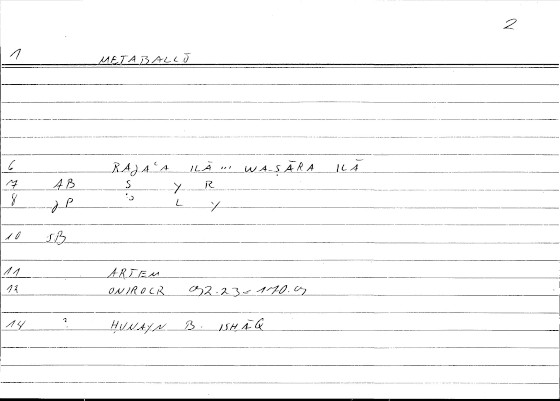 2
1 METABALLŌ
6 RAJAʿA ILĀ ... WA-ṢĀRA ILĀ
7 AB S Y R
8 JP ʾ L Y
10 SB
11 ARTEM
12 ONIROCR 92.23 = 170.9
14 ? ḤUNAYN B. ISḤĀQ